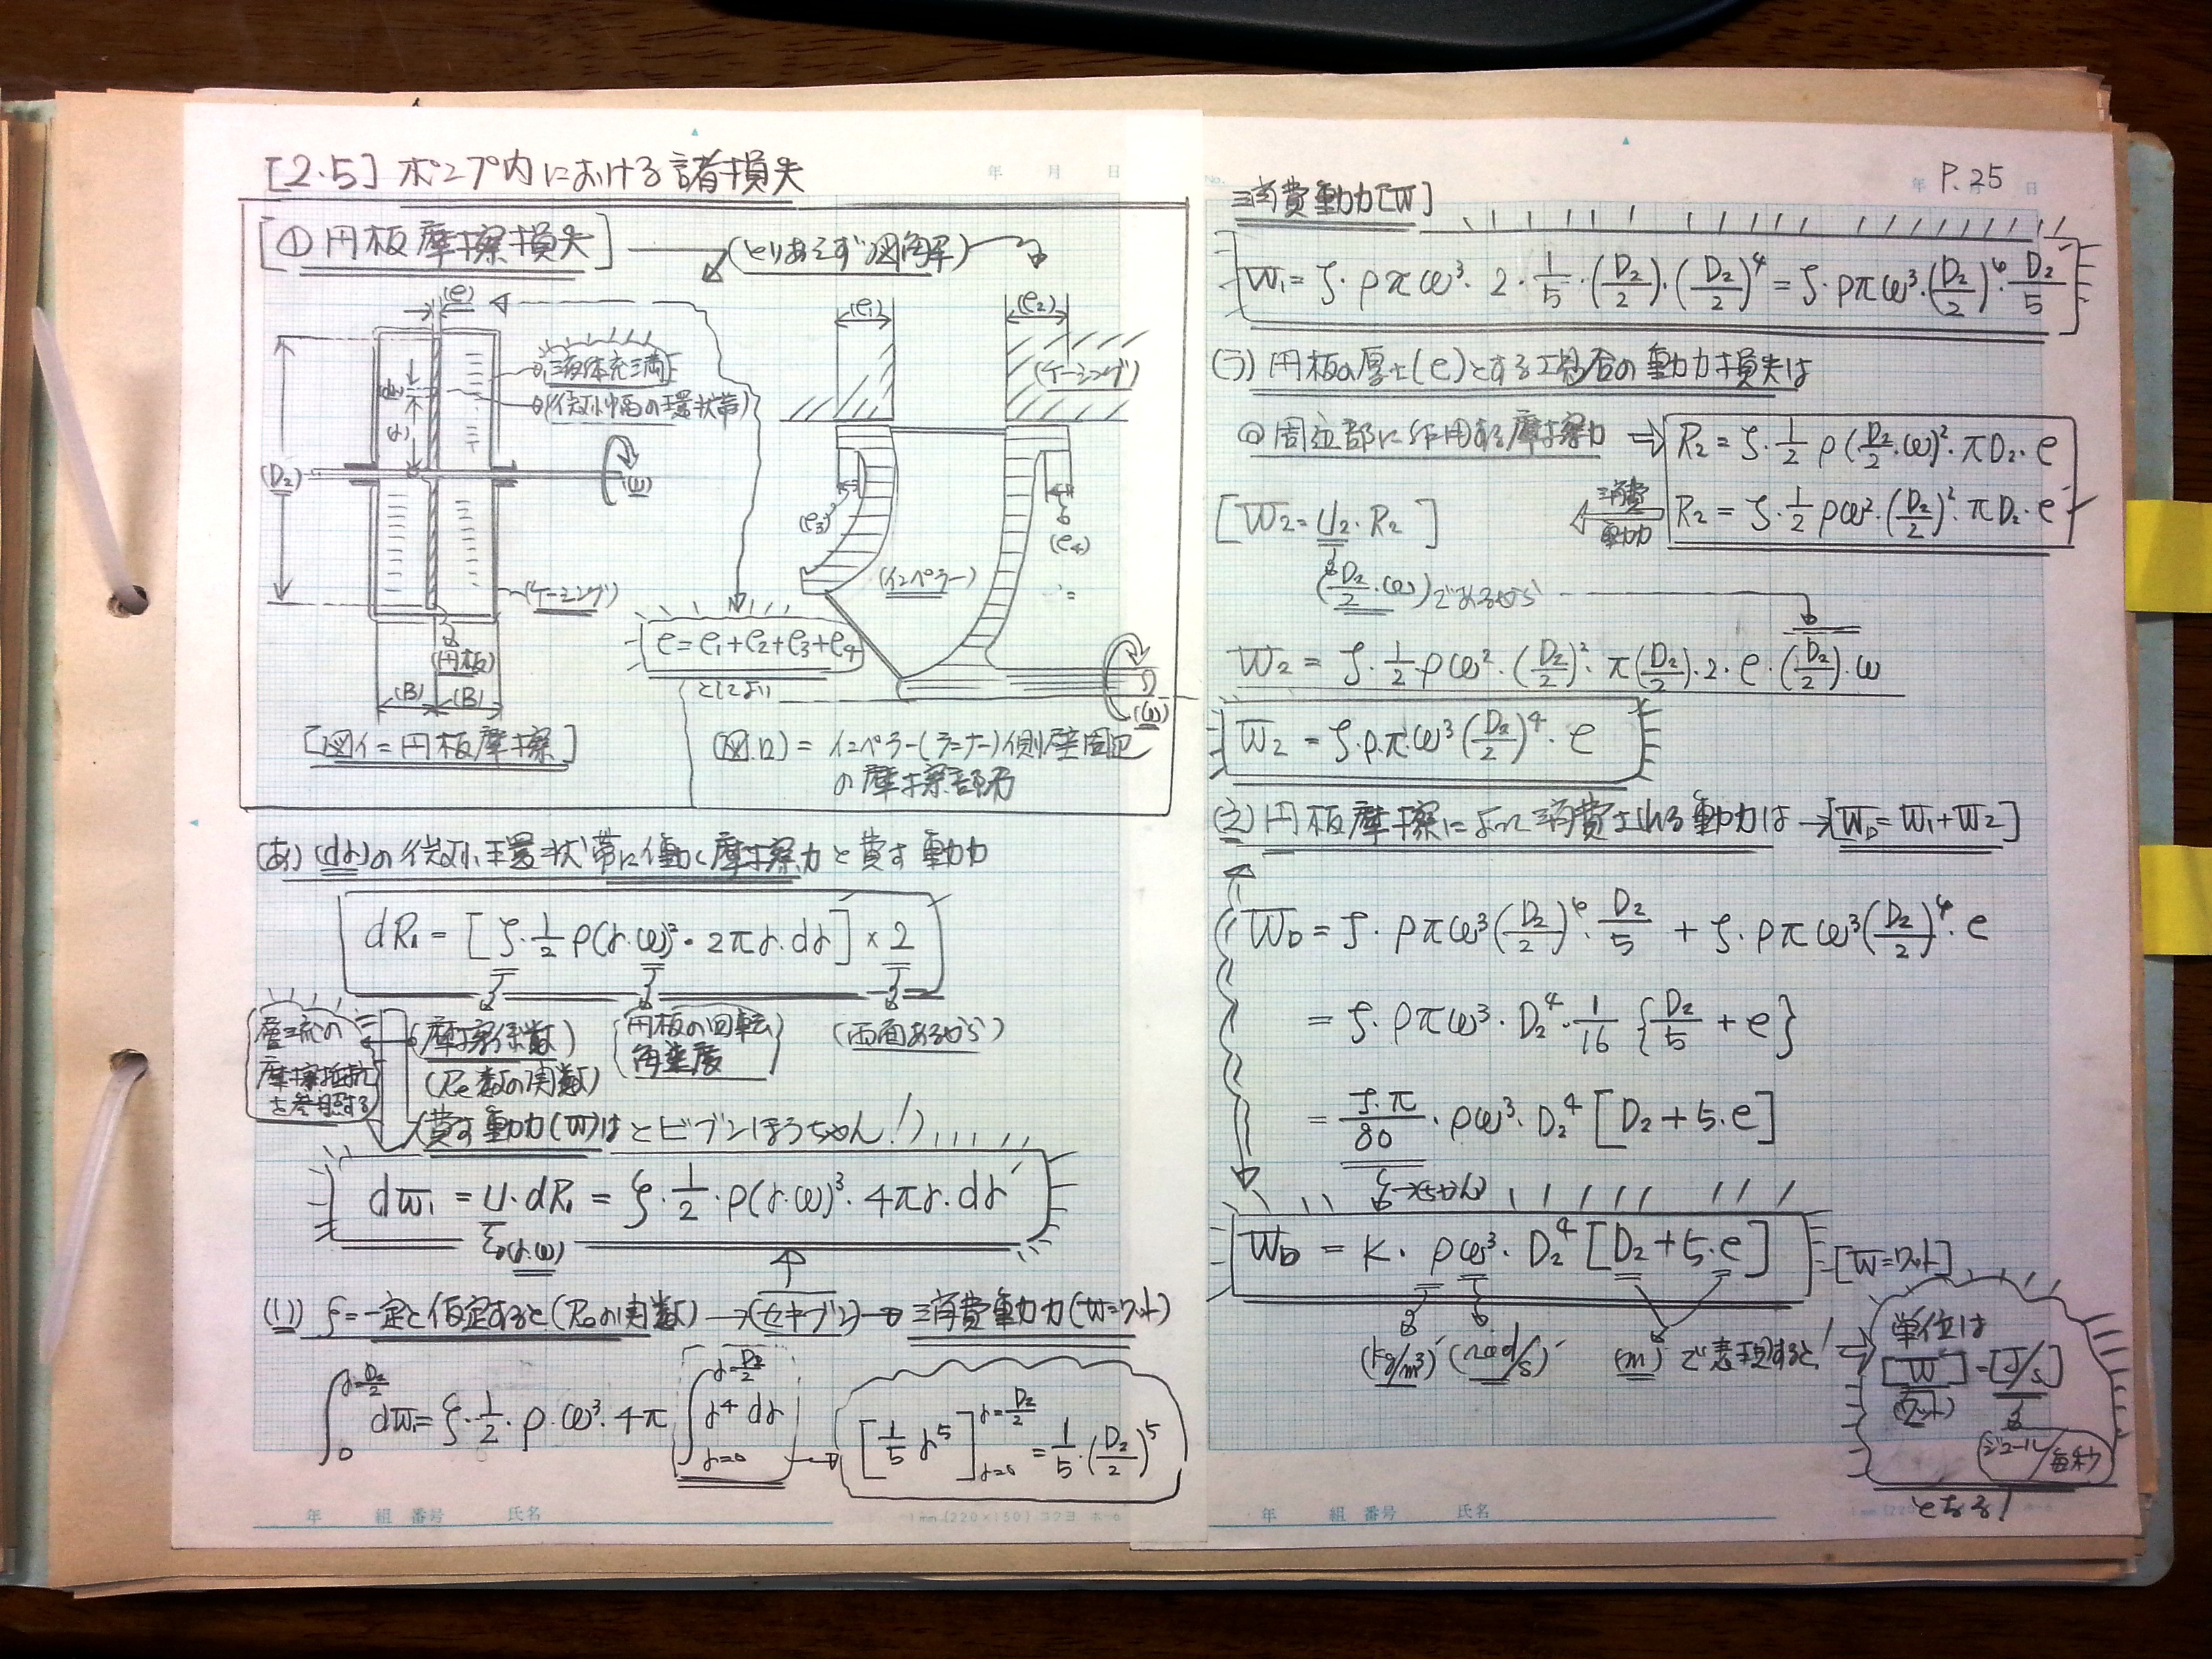 [2.5] ポンプ内における諸損失
[① 円板摩擦損失] → (とりあえず図解)
(e)
(D₂)
(dr)
(r)
液体充満
(微小幅の環状帯)
(ω)
(ケーシング)
(円板)
(B) (B)
[図イ = 円板摩擦]
(e₁) (e₂)
(ケーシング)
(e₃) (e₄)
(インペラー)
e = e₁+e₂+e₃+e₄
としてよい
(ω)
(図.ロ) = インペラー(ランナー)側壁周辺
の摩擦部分
(あ) (dr)の微小環状帯に働く摩擦力と費す動力
dR₁ = [ζ·1/2 ρ(r·ω)²·2πr·dr] × 2
(摩擦係数)
(Re数の関数)
円板の回転
角速度
(両面あるから)
層流の
摩擦抵抗
を参照する
(費す動力(W)はとビブンほうちゃん!)
dW₁ = U·dR₁ = ζ·1/2·ρ(r·ω)³·4πr·dr
(r·ω)
(い) ζ=一定と仮定すると(Reの関数) → (セキブン) → 消費動力(W=ワット)
∫₀^{r=D₂/2} dW₁ = ζ·1/2·ρ·ω³·4π ∫_{r=0}^{r=D₂/2} r⁴ dr → [1/5 r⁵]_{r=0}^{r=D₂/2} = 1/5·(D₂/2)⁵
年 組 番号 氏名
年 月 日
P.25
消費動力[W]
W₁ = ζ·ρπω³·2·1/5·(D₂/2)·(D₂/2)⁴ = ζ·ρπω³·(D₂/2)⁴·D₂/5
(う) 円板の厚さ(e)とする場合の動力損失は
◎周辺部に作用する摩擦力 ⇒ R₂ = ζ·1/2 ρ(D₂/2·ω)²·πD₂·e
R₂ = ζ·1/2 ρω²·(D₂/2)²·πD₂·e
消費
動力
[W₂ = U₂·R₂]
(D₂/2·ω)であるから
W₂ = ζ·1/2·ρω²·(D₂/2)²·π(D₂/2)·2·e·(D₂/2)·ω
W₂ = ζ·ρ·π·ω³(D₂/2)⁴·e
(え) 円板摩擦によって消費される動力は → [W_D = W₁+W₂]
W_D = ζ·ρπω³(D₂/2)⁴·D₂/5 + ζ·ρπω³(D₂/2)⁴·e
= ζ·ρπω³·D₂⁴·1/16 {D₂/5 + e}
= ζ·π/80·ρω³·D₂⁴ [D₂+5·e]
W_D = K·ρω³·D₂⁴ [D₂+5·e] [W=ワット]
(kg/m³) (rad/s) (m) で表現すると!
単位は
[W] = [J/s]
(ワット)
ジュール/毎秒
となる!
年 組 番号 氏名